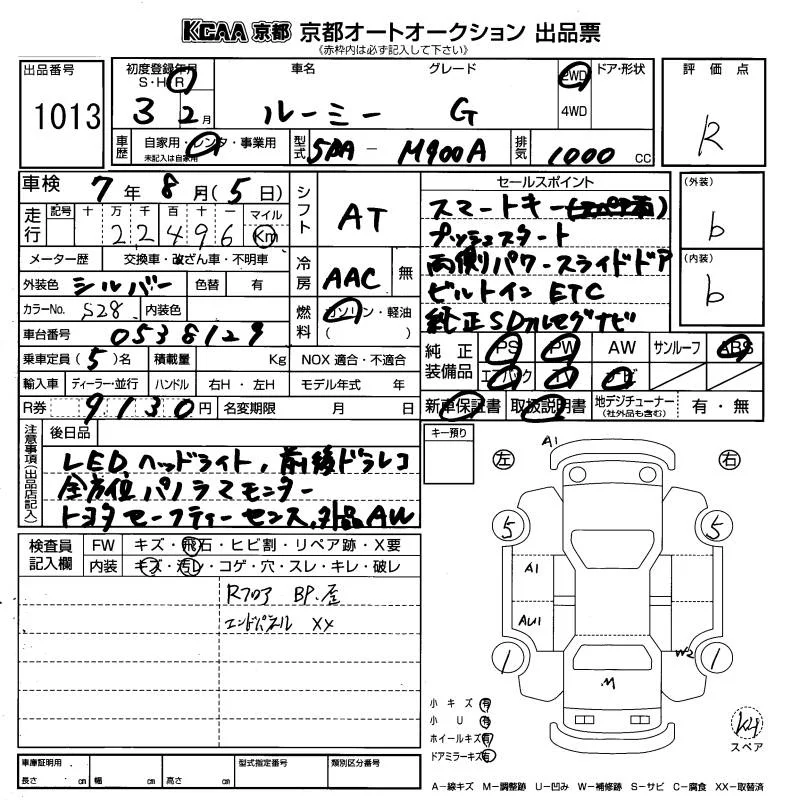 KCAA 京都 京都オートオークション 出品票
《赤枠内は必ず記入して下さい》
出品番号 1013
初度登録年月 S・H・R 3 2月
車名 ルーミー グレード G
2WD 4WD ドア・形状
評価点 R
車歴 自家用・レンタ・事業用
未記入は自家用
型式 5BA-M900A 排気 1000 CC
車検 7年 8月(5日)
シフト AT
走行 記号 十 万 千 百 十 一 マイル Km
22496
メーター歴 交換車・改ざん車・不明車
冷房 AAC 無
外装色 シルバー 色替 有
カラーNo. S28 内装色
燃料 ガソリン・軽油 ( )
車台番号 0538129
乗車定員(5)名 積載量 Kg NOX 適合・不適合
輸入車 ディーラー・並行 ハンドル 右H・左H モデル年式 年
R券 9130円 名変期限 月 日
セールスポイント
スマートキー
プッシュスタート
両側パワースライドドア
ビルトイン ETC
純正SDフルセグナビ
(外装) b
(内装) b
純正装備品 PS PW AW サンルーフ ABS
エアバック TV ナビ
新車保証書 取扱説明書 地デジチューナー (社外品も含む) 有・無
注意事項(出品店記入)
後日品
LEDヘッドライト, 前後ドラレコ
全方位パノラマモニター
トヨタセーフティーセンス, 外品AW
キー預り
検査員記入欄 FW キズ・飛石・ヒビ割・リペア跡・X要
内装 キズ・汚レ・コゲ・穴・スレ・キレ・破レ
BP.屋
エンドパネル XX
左 右
A1
5 5
A1
AU1
1 W2 1
M
小キズ 有
小U 有
ホイールキズ 有
ドアミラーキズ 有
スペア
車庫証明用 長さ cm 幅 cm 高さ cm
型式指定番号 類別区分番号
A-線キズ M-調整跡 U-凹み W-補修跡 S-サビ C-腐食 XX-取替済